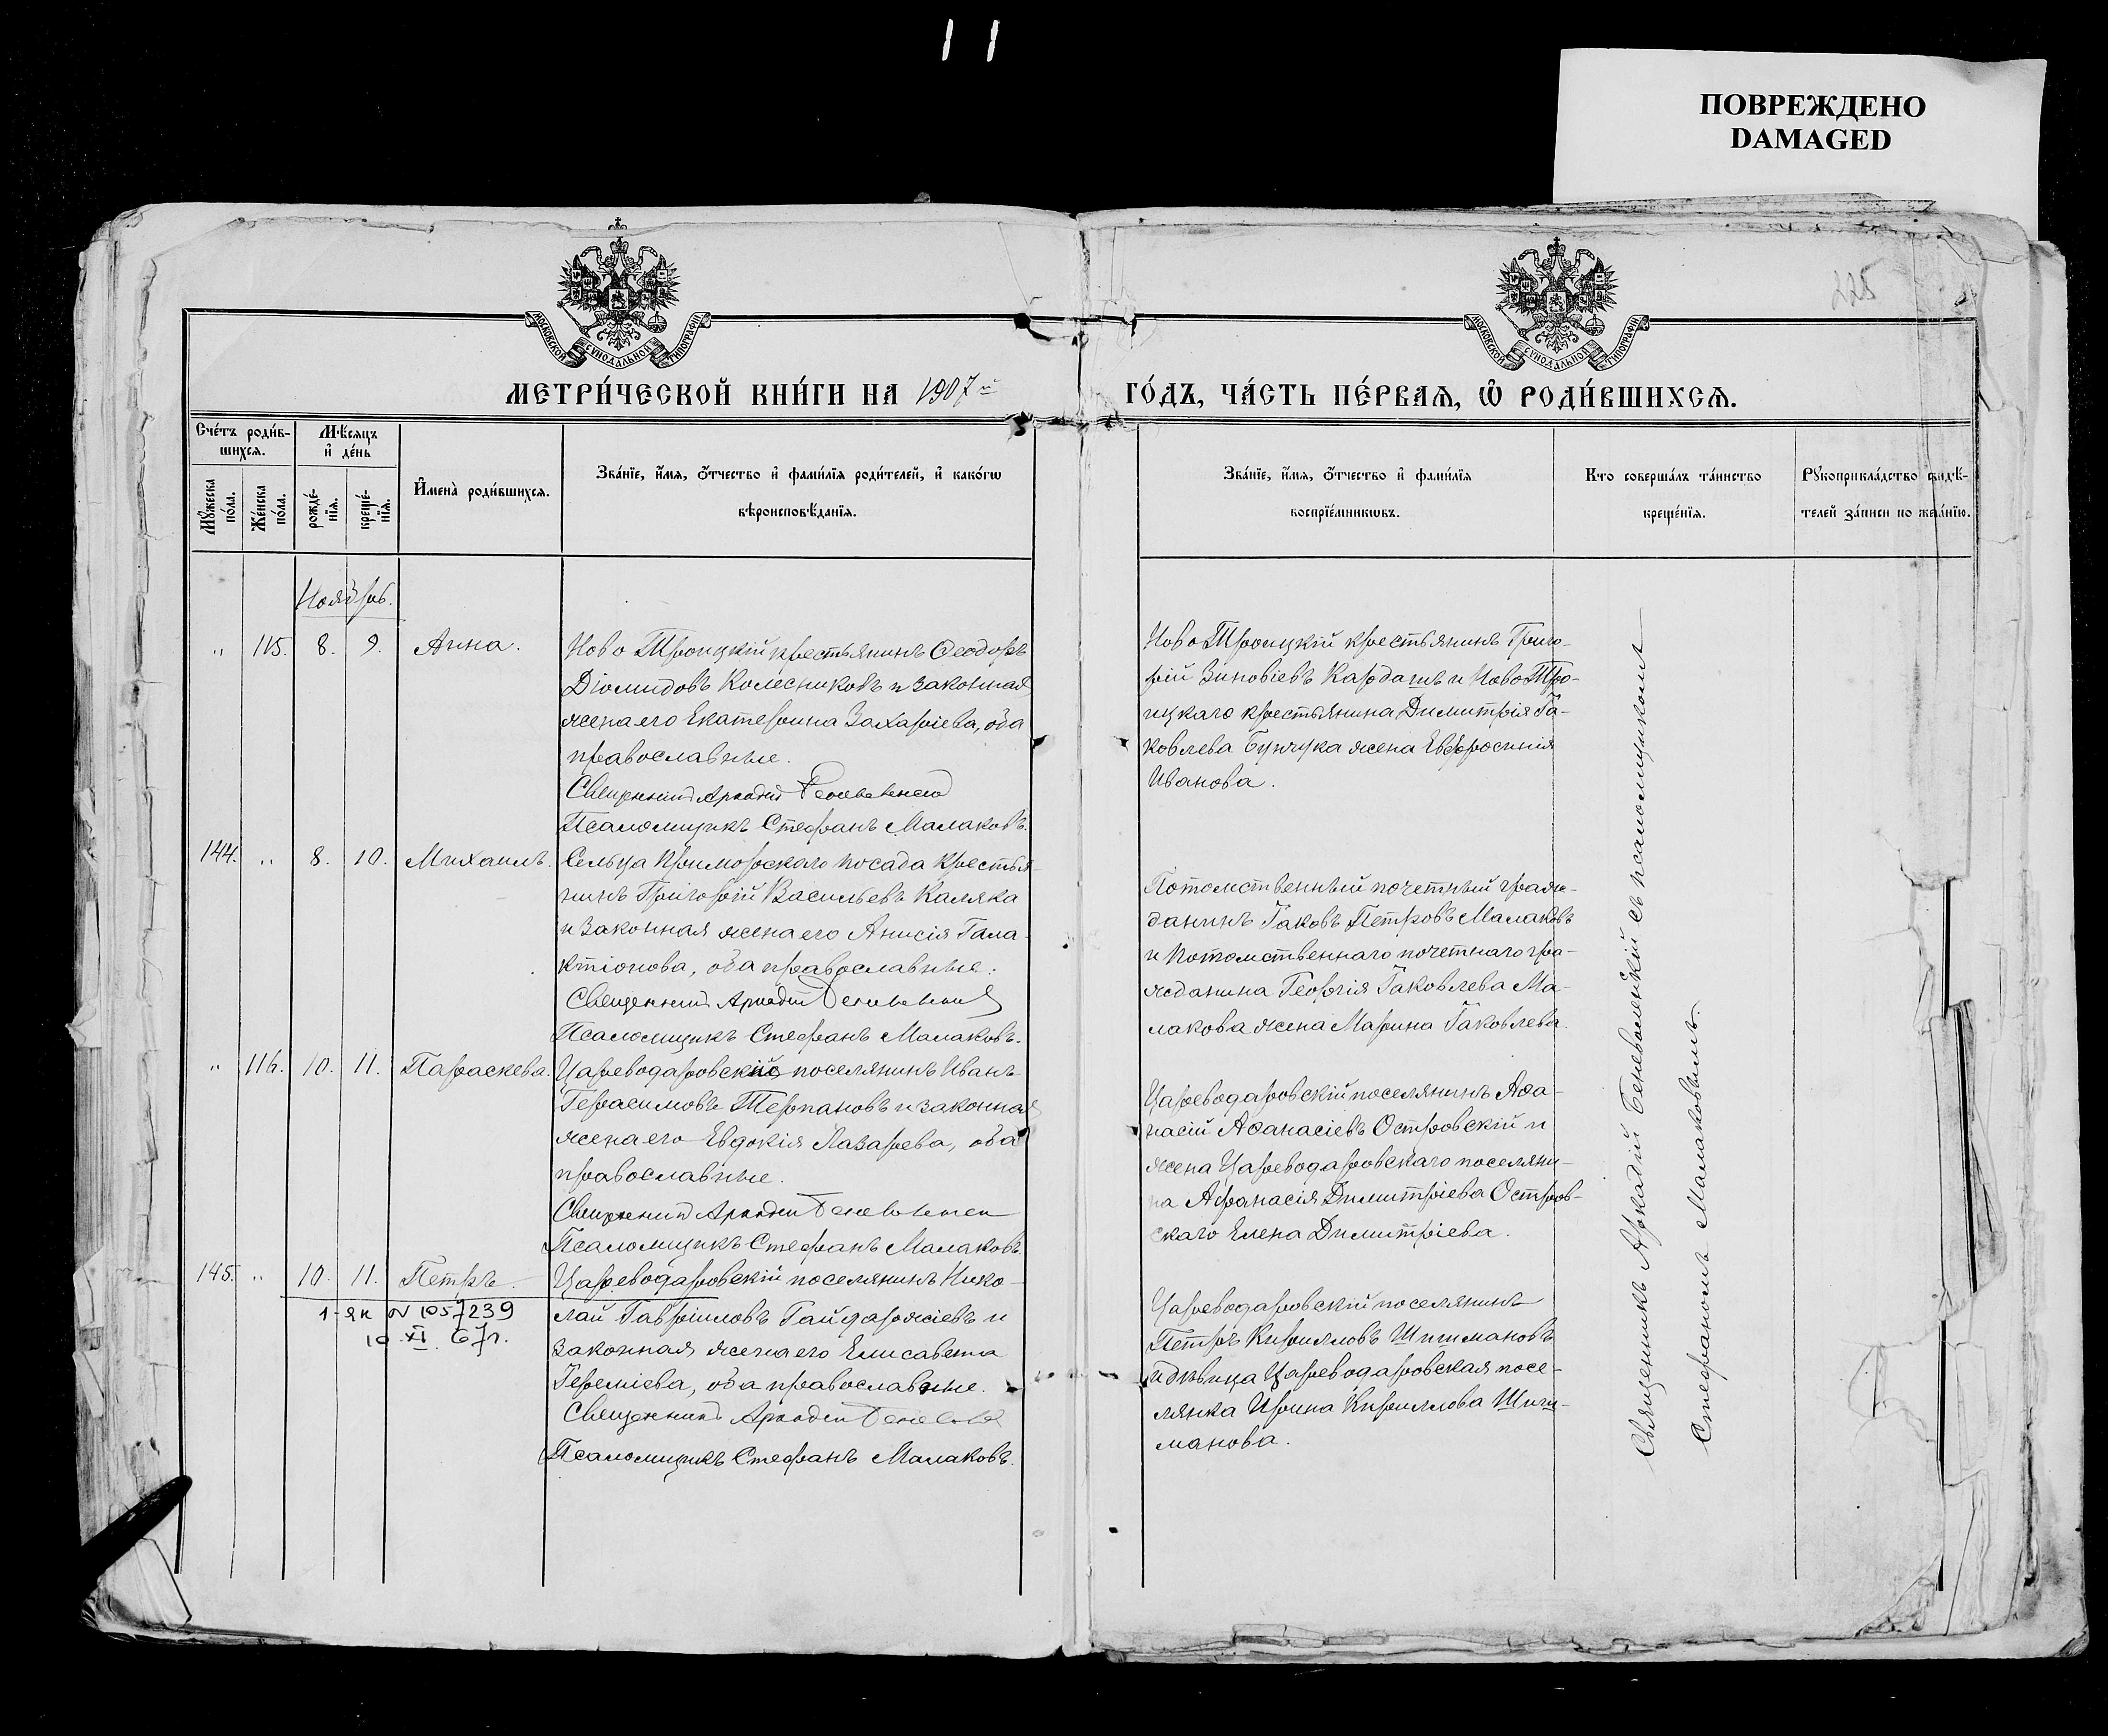 ПОВРЕЖДЕНО
DAMAGED
225
МОСКОВСКОЙ СѴНОДАЛЬНОЙ ТИПОГРАФІИ
МОСКОВСКОЙ СѴНОДАЛЬНОЙ ТИПОГРАФІИ
МЕТРИ́ЧЕСКОЙ КНИ́ГИ НА 1907й
ГО́ДЪ, ЧА́СТЬ ПЕ́РВАѦ, Ѡ҆ РОДИ́ВШИХСѦ.
Сче́тъ роди́в-
шихсѧ.
Мѣ́сѧцъ
и҆ де́нь
Мꙋ́жеска
по́ла.
Же́нска
по́ла.
рожде́-
нїѧ.
креще́-
нїѧ.
И҆мена̀ роди́вшихсѧ.
Зва́нїе, и҆́мѧ, ѻ҆́тчество и҆ фами́лїѧ роди́телей, и҆ како́гѡ
вѣроисповѣ́данїѧ.
Зва́нїе, и҆́мѧ, ѻ҆́тчество и҆ фами́лїѧ
воспрїе́мникѡвъ.
Кто соверша́лъ та́инство
креще́нїѧ.
Рꙋкоприкла́дство свидѣ́-
телей за́писи по жела́нїю.
Ноябрь.
„ 115. 8. 9. Анна.
Ново Троицкій крестьянинъ Ѳеодоръ
Діомидовъ Колесниковъ и законная
жена его Екатерина Захаріева, оба
православные.
Священникъ Аркадій Беневоленскій
Псаломщикъ Стефанъ Малаковъ.
НовоТроицкій крестьянинъ Григо-
рій Зиновіевъ Кардашъ и НовоТро-
ицкаго крестьянина Димитрія Іа-
ковлева Бунчука жена Евфросинія
Иванова.
144. „ 8. 10. Михаилъ.
Сельца Приморскаго посада крестья-
нинъ Григорій Васильевъ Каляка
и законная жена его Анисія Гала-
ктіонова, оба православные.
Священникъ Аркадій Беневоленскій
Псаломщикъ Стефанъ Малаковъ.
Потомственный почетный граж-
данинъ Іаковъ Петровъ Малаковъ
и потомственнаго почетнаго гра-
жданина Георгія Іаковлева Ма-
лакова жена Марина Іаковлева.
„ 116. 10. 11. Параскева.
Цареводаровскій поселянинъ Иванъ
Герасимовъ Терпановъ и законная
жена его Евдокія Лазарева, оба
православные.
Священникъ Аркадій Беневоленскій
Псаломщикъ Стефанъ Малаковъ.
Цареводаровскій поселянинъ Аѳа-
насій Аѳанасіевъ Островскій и
жена Цареводаровскаго поселяни-
на Афанасія Димитріева Остров-
скаго Елена Димитріева.
145. „ 10. 11. Петръ.
1-яп № 1057239
10 XI 67г.
Цареводаровскій поселянинъ Нико-
лай Гавріиловъ Гайдаржіевъ и
законная жена его Елисавета
Іереміева, оба православные.
Священникъ Аркадій Беневоленскій
Псаломщикъ Стефанъ Малаковъ.
Цареводаровскій поселянинъ
Петръ Кирилловъ Шишмановъ
и дѣвица Цареводаровская посе-
лянка Ирина Кириллова Шиш-
манова.
Священникъ Аркадій Беневоленскій съ псаломщикомъ
Стефаномъ Малаковымъ.